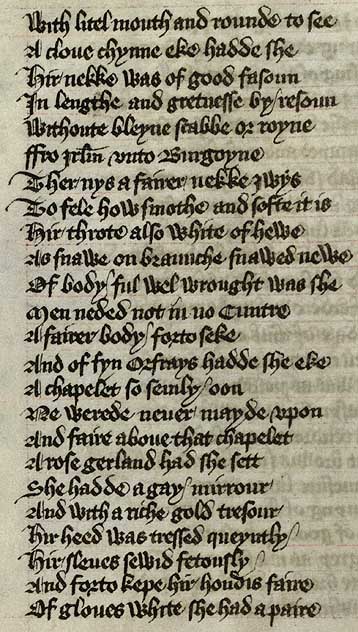 With litel mouth and rounde to see
A cloue chynne eke hadde she
Hir nekke was of good fasoun
In lengthe and gretnesse by / resoun
Withoute bleyne scabbe or royne
ffro Jrlm vnto Burgoyne
Ther nys a fairer nekke ywys
To fele how smothe and softe it is
Hir throte also white of hewe
As snawe on braunche snawed newe
Of body / ful wel wrought was she
Men neded not in no Cuntre
A fairer body / forto seke
And of fyn Orfrays hadde she eke
A chapelet so semly / oon
Ne werede neuer mayde vpon
And faire aboue that chapelet
A rose gerland had she sett
She hadde a gay / mirrour
And with a riche gold tresour
Hir heed was tressed queyntly /
Hir sleues sewid fetously /
And forto kepe hir hondis faire
Of gloues white she had a paire